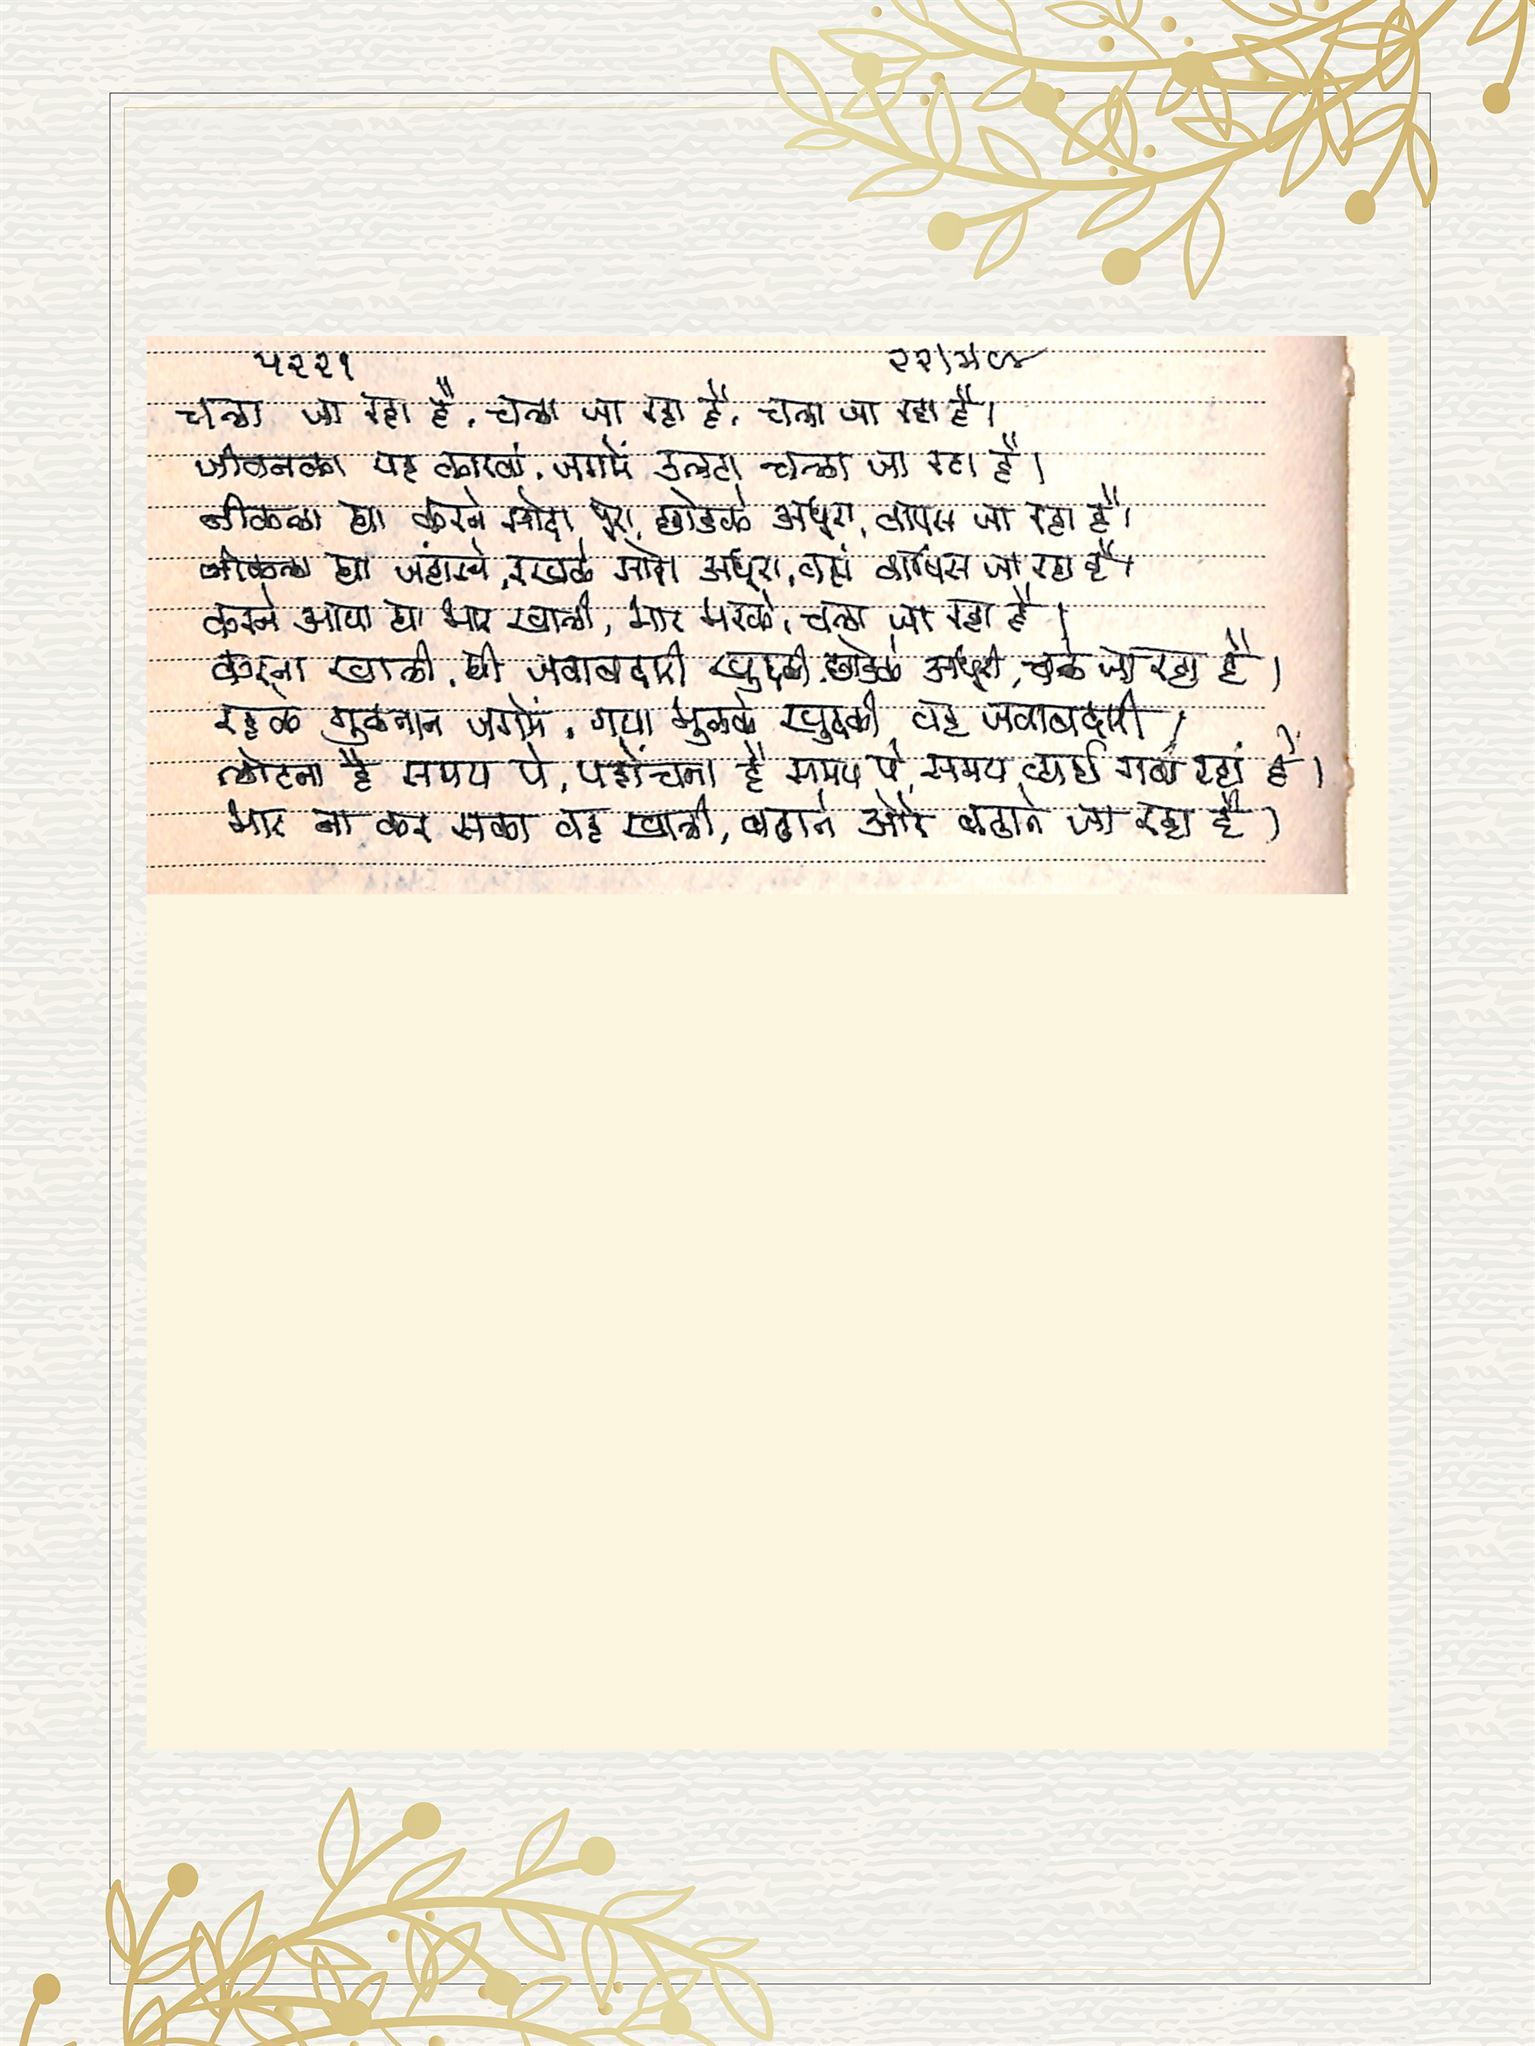 ५२२१
चला जा रहा है, चला जा रहा है, चला जा रहा है।
जीवनका यह कारवां, जगमें उलटा चला जा रहा है।
नीकला था करने सौदा पूरा, छोडके अधूरा, वापस जा रहा है।
नीकला था जहांसे, रखके अधूरा, वहां वापिस जा रहा है।
करने आया था भार खाली, भार भरके, चला जा रहा है।
करना खाली, थी जवाबदारी खुदकी, छोडके अधूरी, चले जा रहा है।
रहके गुलतान जगमें, गया भुलके खुदकी वह जवाबदारी।
लोटना है समय पे, पहोंचना है समय पे, समय व्यर्थ गवां रहा है।
भार ना कर सका वह खाली, बढाने और बढाने जा रहा है।